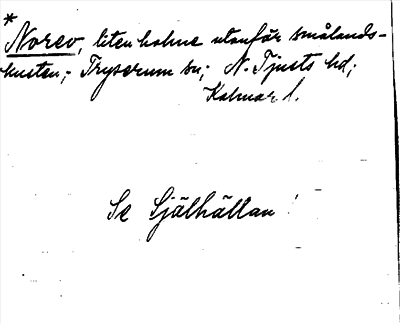 *
Norev, liten holme utanför smålands-
kusten; Tryserum sn; N. Tjusts hd;
Kalmar l.
Se Själhällan